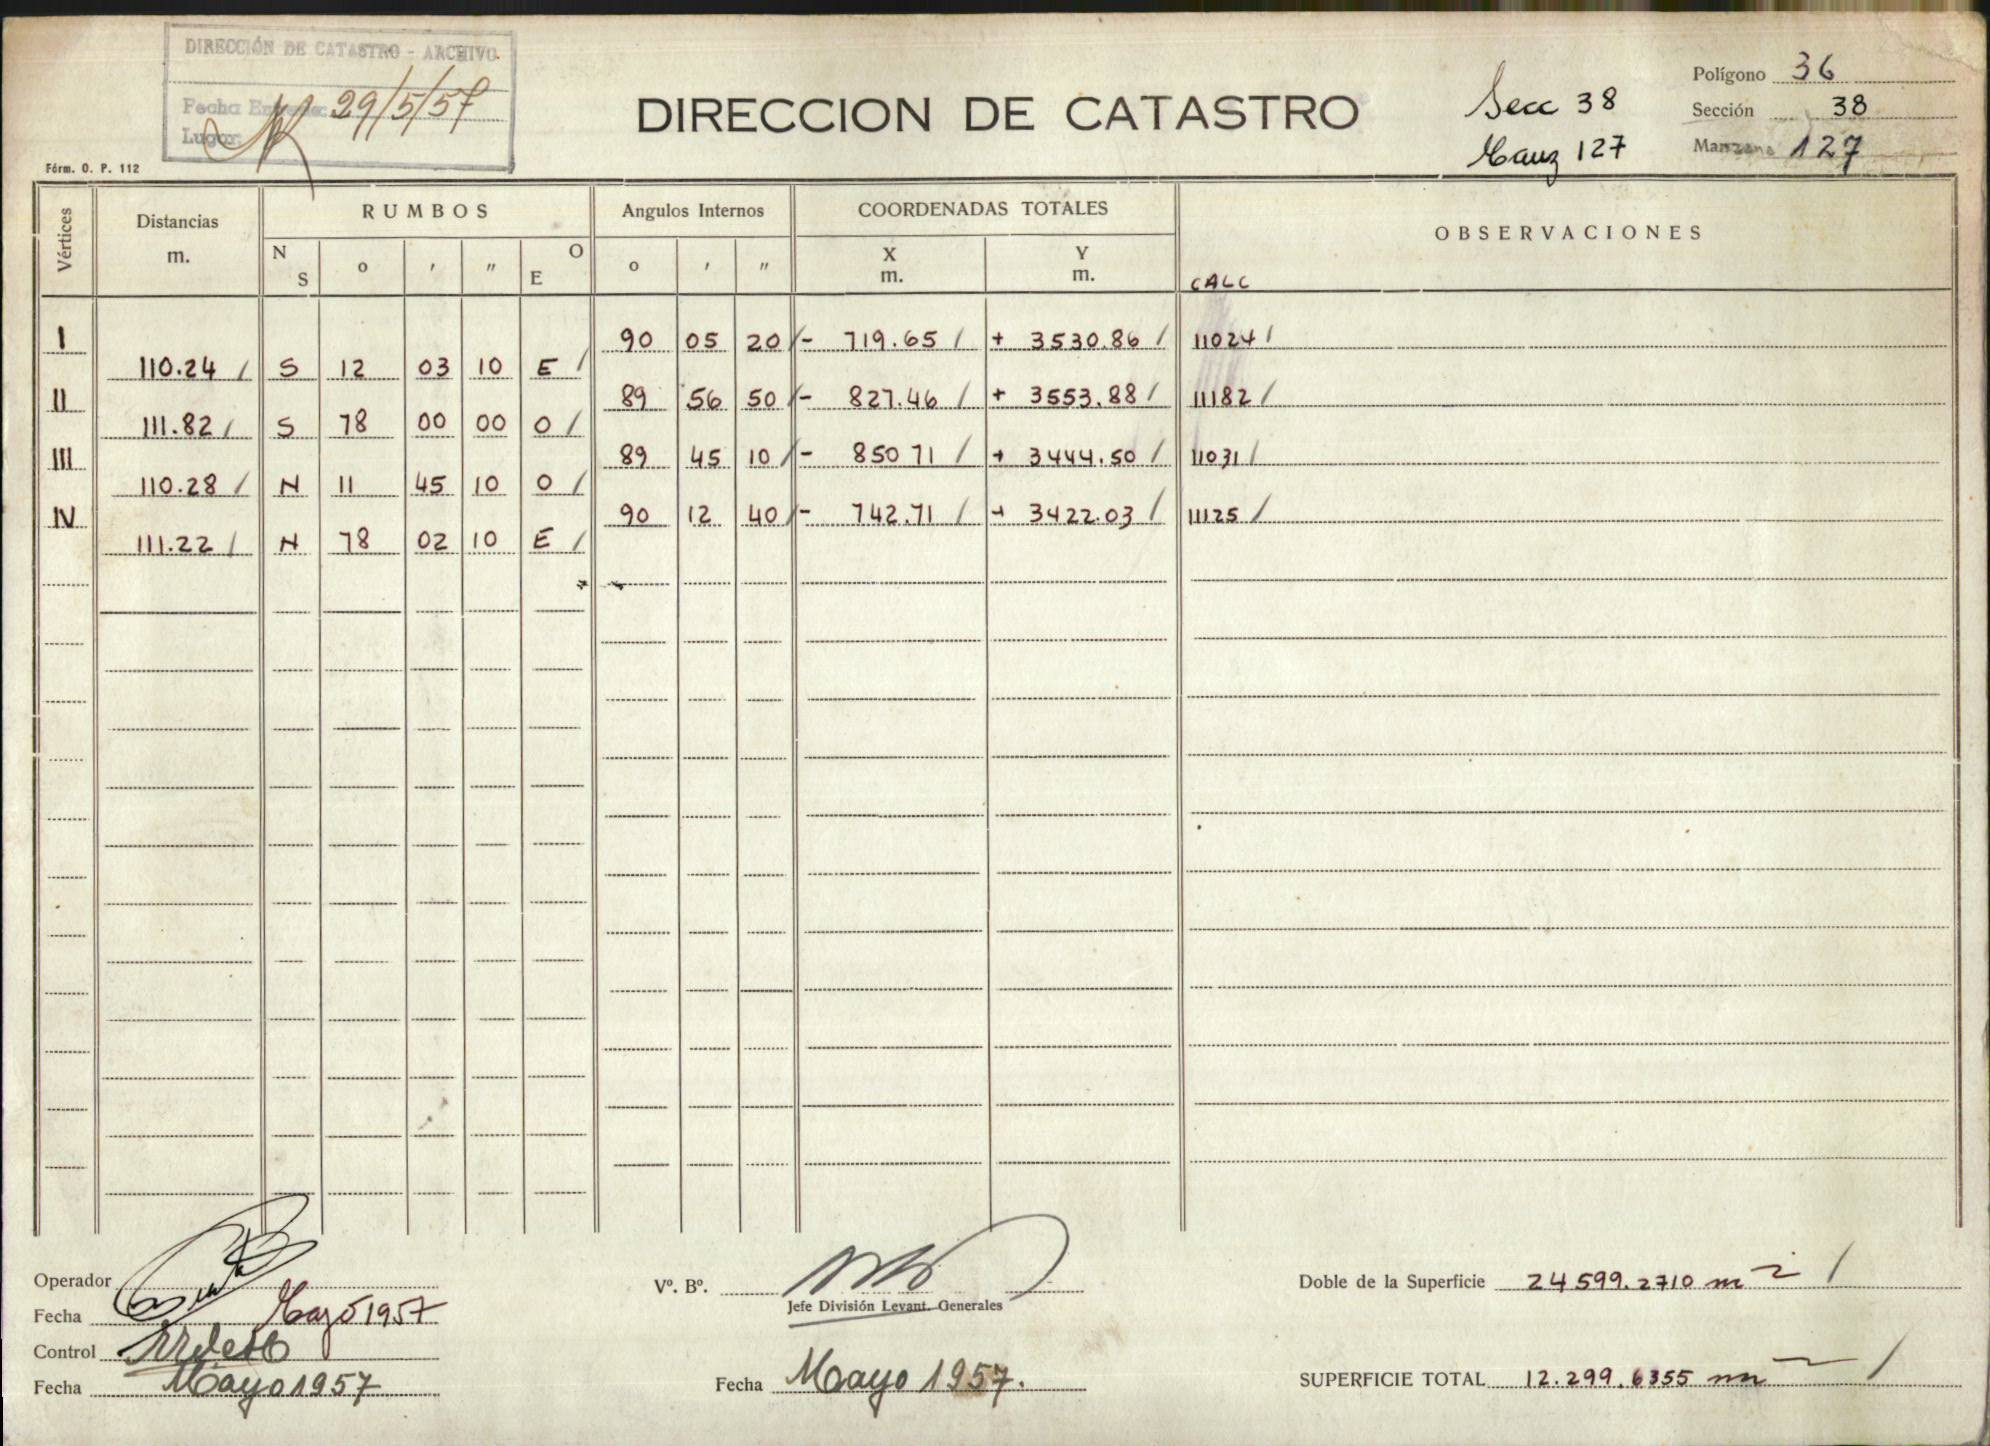 DIRECCIÓN DE CATASTRO - ARCHIVO.
Fecha 29/5/57
Lugar
Fórm. O. P. 112
DIRECCION DE CATASTRO
Secc 38
Manz 127
Polígono 36
Sección 38
Manzana 127
Vértices Distancias m. RUMBOS Angulos Internos COORDENADAS TOTALES OBSERVACIONES
N S o ' " E O o ' " X m. Y m. CALC
I 90 05 20 / - 719.65 / + 3530.86 / 11024 /
110.24 / S 12 03 10 E /
II 89 56 50 / - 827.46 / + 3553.88 / 11182 /
111.82 / S 78 00 00 O /
III 89 45 10 / - 850 71 / + 3444.50 / 11031 /
110.28 / N 11 45 10 O /
IV 90 12 40 / - 742.71 / + 3422.03 / 11125 /
111.22 / N 78 02 10 E /
Operador
Fecha Mayo 1957
Control
Fecha Mayo 1957
Vº. Bº.
Jefe División Levant. Generales
Fecha Mayo 1957.
Doble de la Superficie 24599.2710 m2 /
SUPERFICIE TOTAL 12.299.6355 m2 /